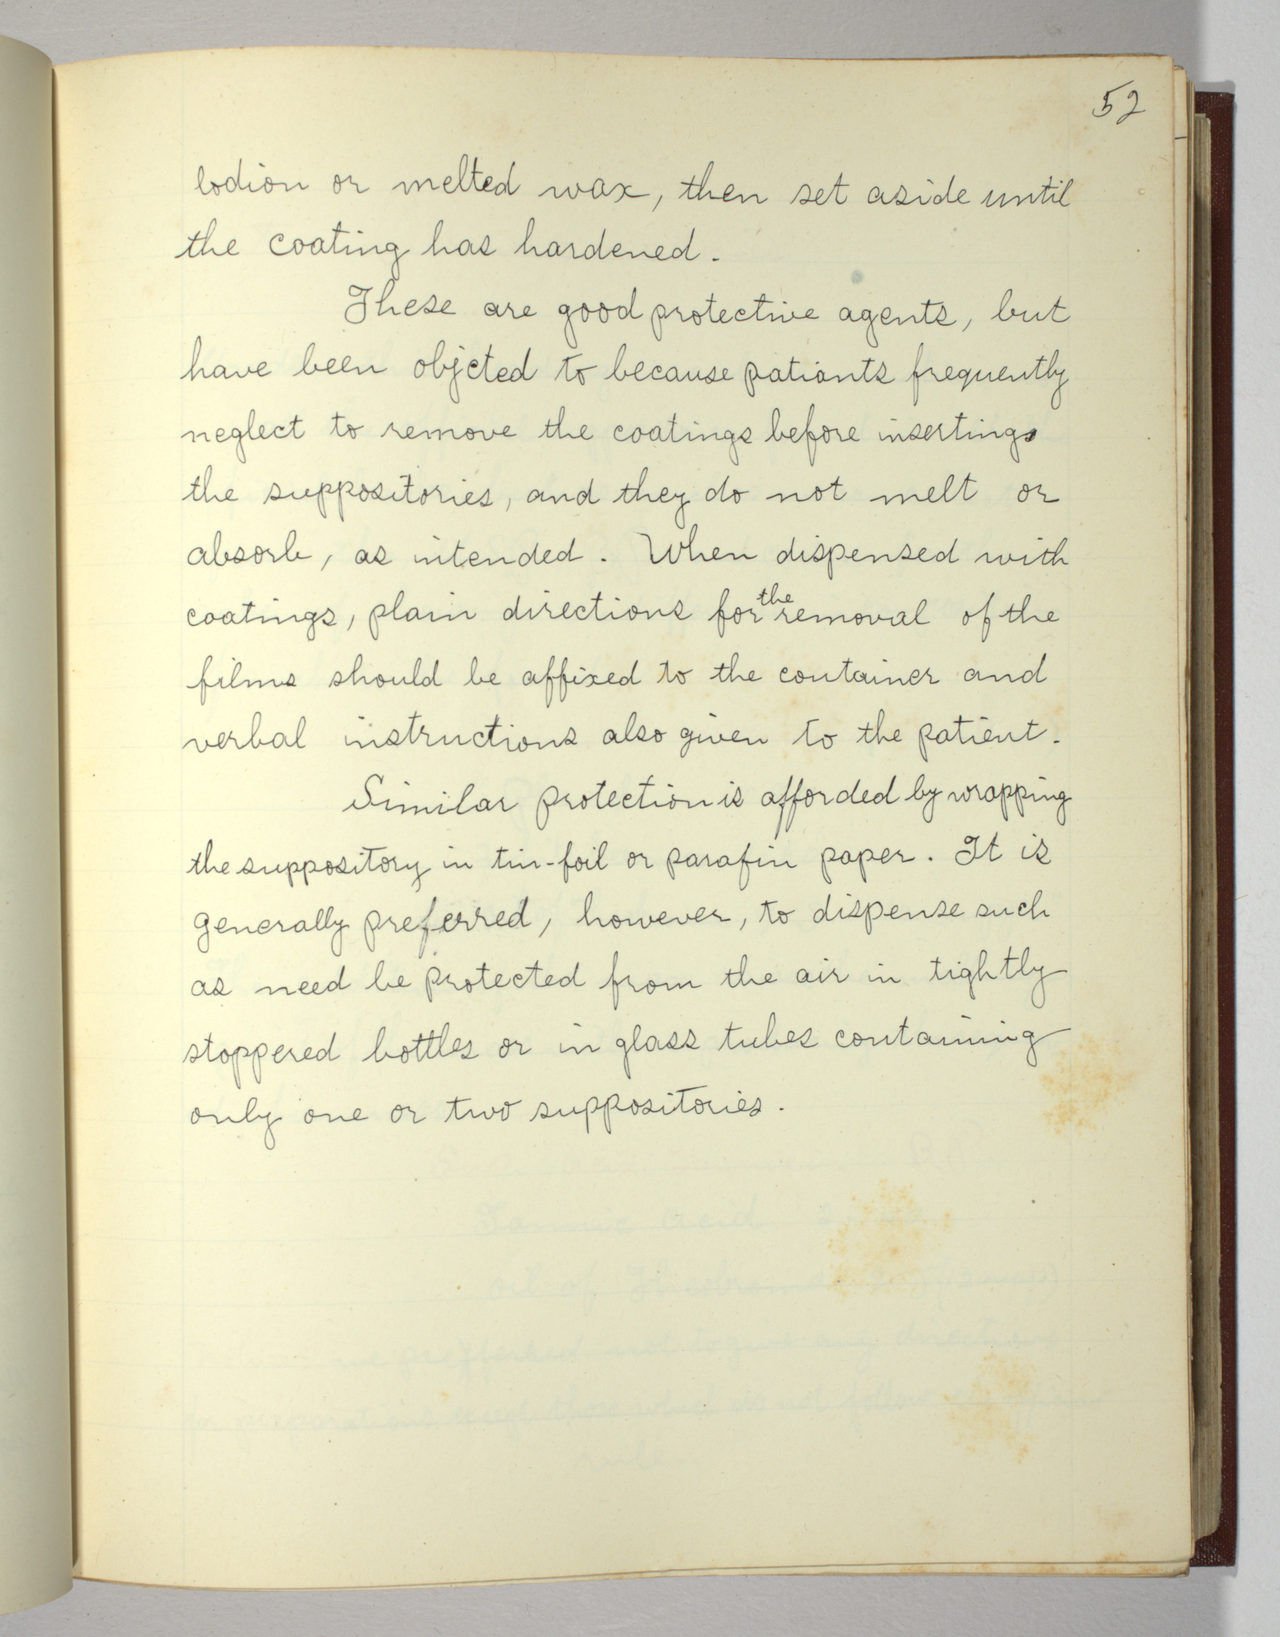 52
lodion or melted wax, then set aside until
the coating has hardened.
These are good protective agents, but
have been objcted to because patiants frequently
neglect to remove the coatings before inserting
the suppositories, and they do not melt or
absorb, as intended. When dispensed with
coatings, plain directions for the removal of the
films should be affixed to the container and
verbal instructions also given to the patient.
Similar protection is afforded by wrapping
the suppository in tin-foil or parafin paper. It is
generally preferred, however, to dispense such
as need be protected from the air in tightly
stoppered bottles or in glass tubes containing
only one or two suppositories.
Tannic acid
oil of Theobroma